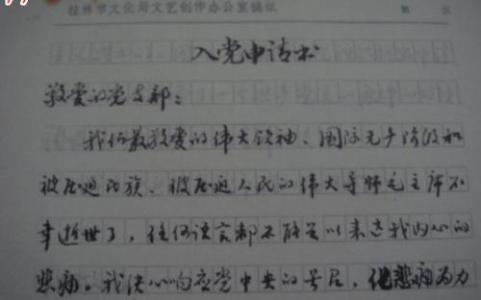 桂林市文化局文艺创作办公室稿纸 第 页
入党申请书
敬爱的党支部:
我们最敬爱的伟大领袖、国际无产阶级和
被压迫民族、被压迫人民的伟大导师毛主席不
幸逝世了,任何语言都不能足以表达我内心的
悲痛。我决心响应党中央的号召,化悲痛为力